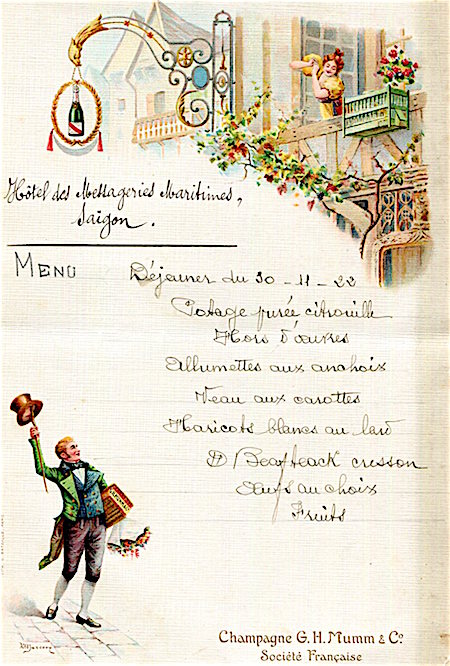 Hôtel des Messageries Maritimes,
Saïgon.
MENU
Déjeuner du 30-11-22
Potage purée citrouille
Hors d'œuvres
Allumettes aux anchoix
Veau aux carottes
Haricots blancs au lard
Beafteack cresson
Œufs au choix
Fruits
Champagne G. H. Mumm & Cº
Société Française